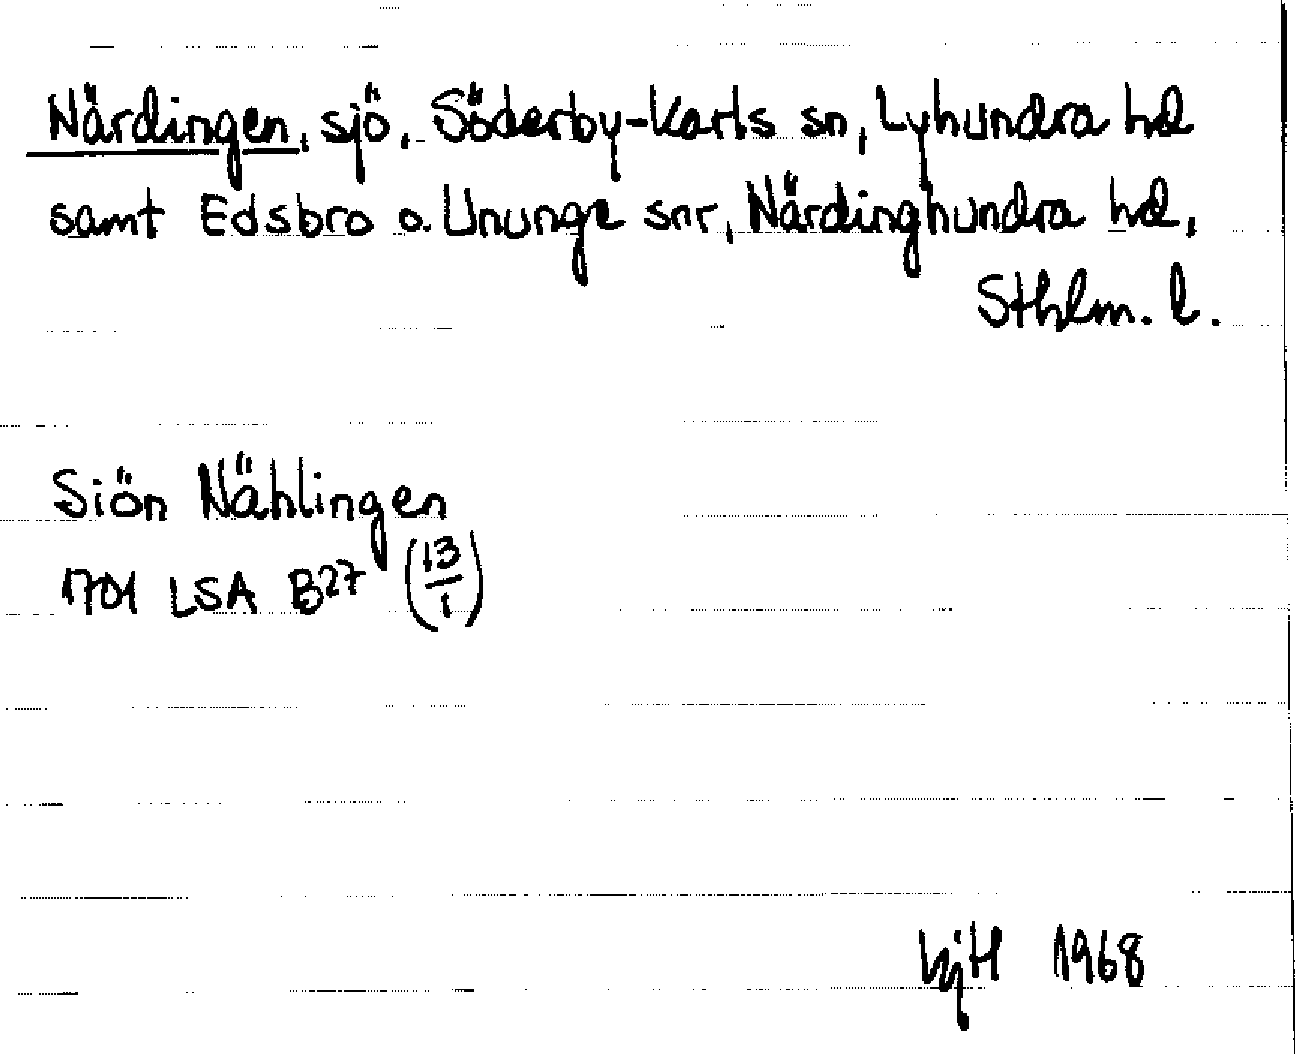 Närdingen, sjö, Söderby-Karls sn, Lyhundra hd
samt Edsbro o. Ununge snr, Närdinghundra hd,
Sthlm. l.
Siön Nählingen
1701 LSA B27 (13/1)
1968